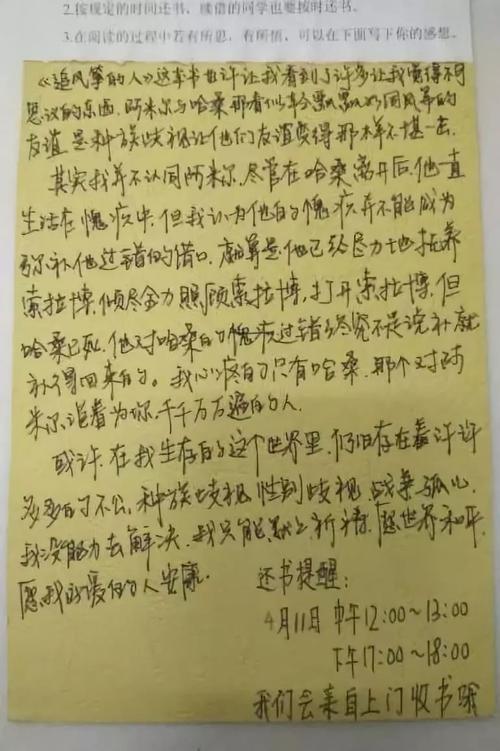 2.按规定的时间还书，续借的同学也要按时还书。
3.在阅读的过程中若有所思，有所悟，可以在下面写下你的感想。
《追风筝的人》这本书也许让我看到了许多让我觉得不可
思议的东西，阿米尔与哈桑那看似十分飘飘如同风筝的
友谊，是种族歧视让他们友谊变得那样不堪一击.
其实我并不认同阿米尔，尽管在哈桑离开后，他一直
生活在愧疚中，但我认为他的愧疚并不能成为
弥补他过错的借口，就算是他已经尽力地抚养
索拉博，倾尽全力照顾索拉博，打开索拉博，但
哈桑已死，他对哈桑的愧疚过错终究不是说补就
补得回来的。我心疼的只有哈桑，那个对阿
米尔追着为你，千千万万遍的人.
或许，在我生存的这个世界里，仍旧存在着许许
多多的不公，种族歧视，性别歧视，战争孤儿，
我没能力去解决，我只能献上祈祷，愿世界和平，
愿我所爱的人安康.
还书提醒：
4月11日 中午12:00~13:00
下午17:00~18:00
我们会亲自上门收书哦